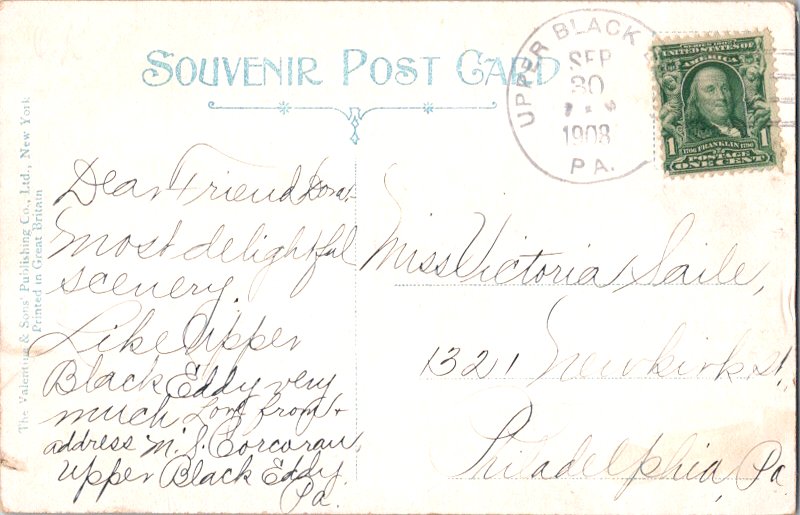 SOUVENIR POST CARD
UPPER BLACK
SEP
30
1908
PA.
SERIES 1902
UNITED STATES OF
AMERICA
1706 FRANKLIN 1790
1 1
POSTAGE
ONE CENT
The Valentine & Sons' Publishing Co., Ltd., New York
Printed in Great Britain
Dear Friend
most delightful
scenery.
Like Upper
Black Eddy very
much Love from
address M. J. Corcoran,
Upper Black Eddy.
Pa.
Miss Victoria Saile,
1321 Newkirk St,
Philadelphia, Pa